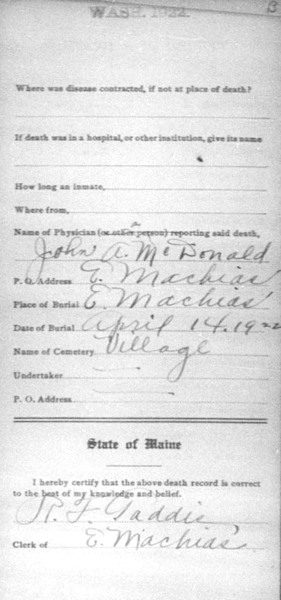 WASH. 1922
B
Where was disease contracted, if not at place of death?
If death was in a hospital, or other institution, give its name
How long an inmate,
Where from,
Name of Physician (or other person) reporting said death,
John A. McDonald
P. O. Address E. Machias
Place of Burial E. Machias
Date of Burial April 14, 1922
Name of Cemetery Village
Undertaker
P. O. Address
State of Maine
I hereby certify that the above death record is correct
to the best of my knowledge and belief.
R. F. Gaddis
Clerk of E. Machias